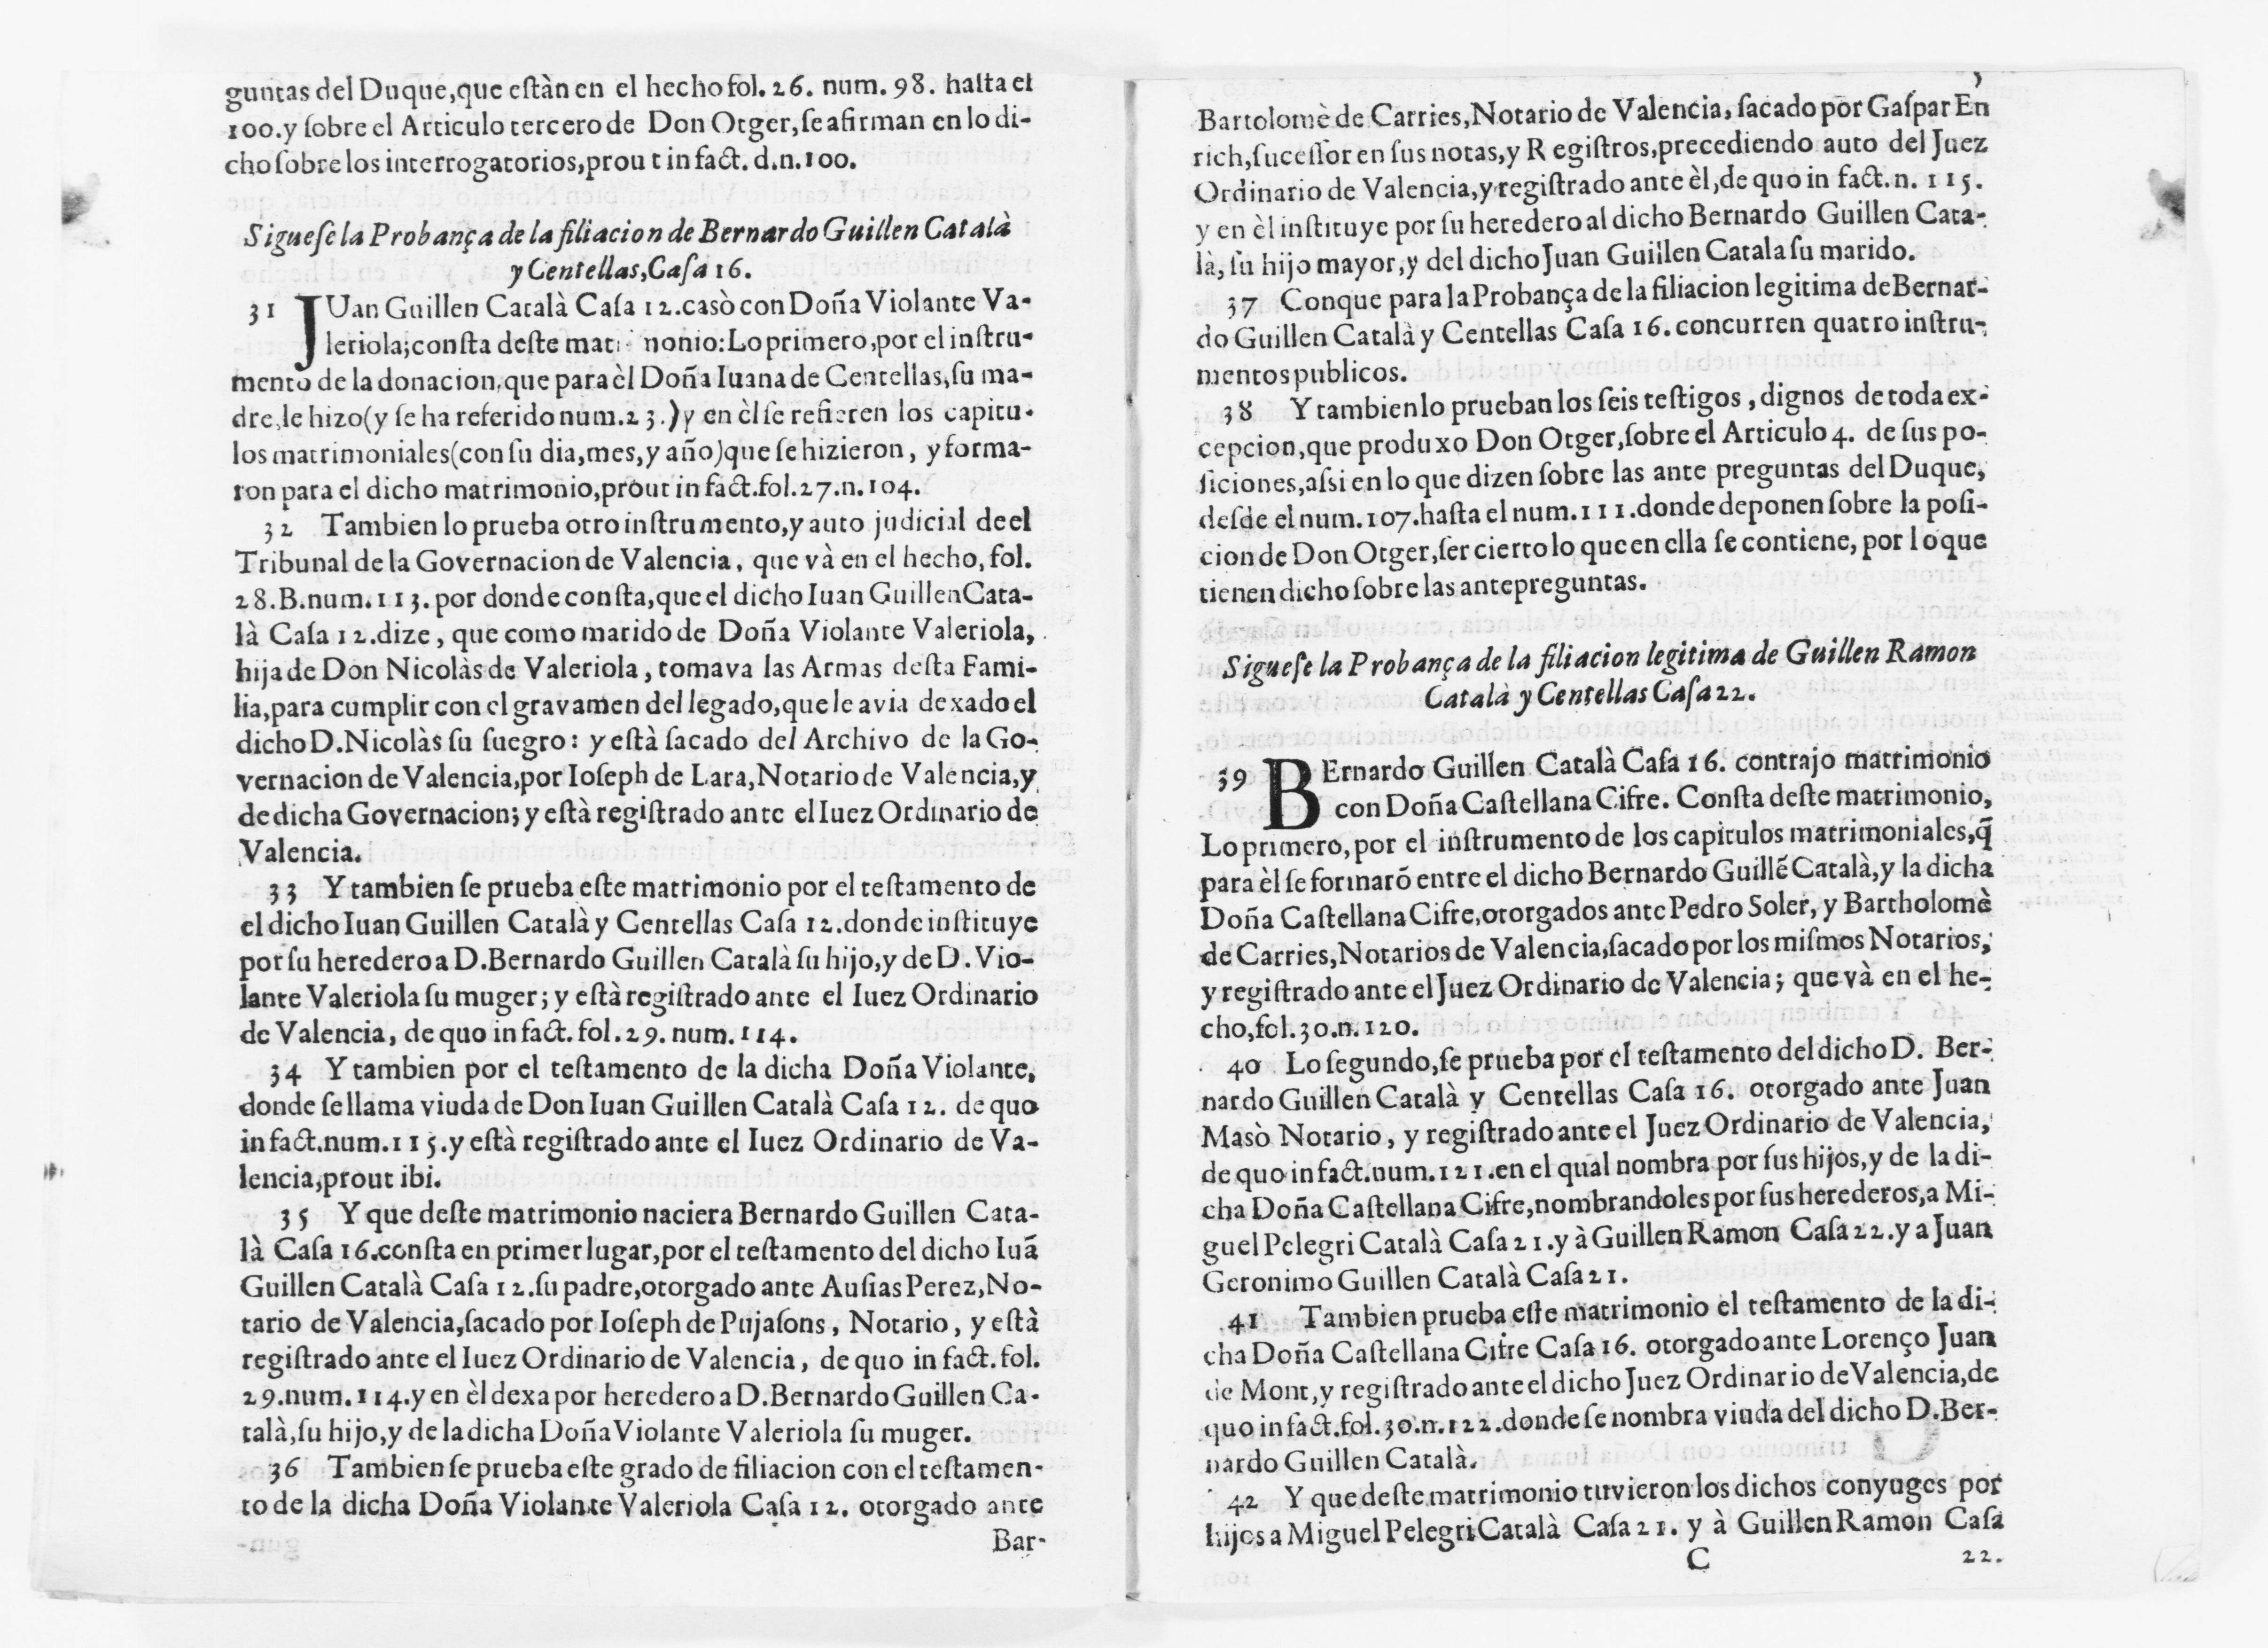 guntas del Duque, que eſtàn en el hecho fol. 26. num. 98. haſta el
100. y ſobre el Articulo tercero de Don Otger, ſe afirman en lo di-
cho ſobre los interrogatorios, prout in fact. d. n. 100.
Sigueſe la Probança de la filiacion de Bernardo Guillen Català
y Centellas, Caſa 16.
31 JUan Guillen Català Caſa 12. casò con Doña Violante Va-
leriola; conſta deſte mat nonio: Lo primero, por el inſtru-
mento de la donacion, que para èl Doña Iuana de Centellas, ſu ma-
dre, le hizo (y ſe ha referido num. 23.) y en èl ſe refieren los capitu-
los matrimoniales (con ſu dia, mes, y año) que ſe hizieron, y forma-
ron para el dicho matrimonio, prout in fact. fol. 27. n. 104.
32 Tambien lo prueba otro inſtrumento, y auto judicial de el
Tribunal de la Governacion de Valencia, que và en el hecho, fol.
28. B. num. 113. por donde conſta, que el dicho Iuan Guillen Cata-
là Caſa 12. dize, que como marido de Doña Violante Valeriola,
hija de Don Nicolàs de Valeriola, tomava las Armas deſta Fami-
lia, para cumplir con el gravamen del legado, que le avia dexado el
dicho D. Nicolàs ſu ſuegro: y eſtà ſacado del Archivo de la Go-
vernacion de Valencia, por Ioſeph de Lara, Notario de Valencia, y
de dicha Governacion; y eſtà regiſtrado ante el Iuez Ordinario de
Valencia.
33 Y tambien ſe prueba eſte matrimonio por el teſtamento de
el dicho Iuan Guillen Català y Centellas Caſa 12. donde inſtituye
por ſu heredero a D. Bernardo Guillen Català ſu hijo, y de D. Vio-
lante Valeriola ſu muger; y eſtà regiſtrado ante el Iuez Ordinario
de Valencia, de quo in fact. fol. 29. num. 114.
34 Y tambien por el teſtamento de la dicha Doña Violante,
donde ſe llama viuda de Don Iuan Guillen Català Caſa 12. de quo
in fact. num. 115. y eſtà regiſtrado ante el Iuez Ordinario de Va-
lencia, prout ibi.
35 Y que deſte matrimonio naciera Bernardo Guillen Cata-
là Caſa 16. conſta en primer lugar, por el teſtamento del dicho Iuã
Guillen Català Caſa 12. ſu padre, otorgado ante Auſias Perez, No-
tario de Valencia, ſacado por Ioſeph de Pujaſons, Notario, y eſtà
regiſtrado ante el Iuez Ordinario de Valencia, de quo in fact. fol.
29. num. 114. y en èl dexa por heredero a D. Bernardo Guillen Ca-
talà, ſu hijo, y de la dicha Doña Violante Valeriola ſu muger.
36 Tambien ſe prueba eſte grado de filiacion con el teſtamen-
to de la dicha Doña Violante Valeriola Caſa 12. otorgado ante
Bar-
Bartolomè de Carries, Notario de Valencia, ſacado por Gaſpar En
rich, ſuceſſor en ſus notas, y Regiſtros, precediendo auto del Juez
Ordinario de Valencia, y regiſtrado ante èl, de quo in fact. n. 115.
y en èl inſtituye por ſu heredero al dicho Bernardo Guillen Cata-
là, ſu hijo mayor, y del dicho Juan Guillen Catala ſu marido.
37 Conque para la Probança de la filiacion legitima de Bernar-
do Guillen Català y Centellas Caſa 16. concurren quatro inſtru-
mentos publicos.
38 Y tambien lo prueban los ſeis teſtigos, dignos de toda ex-
cepcion, que produxo Don Otger, ſobre el Articulo 4. de ſus po-
ſiciones, aſsi en lo que dizen ſobre las ante preguntas del Duque,
deſde el num. 107. haſta el num. 111. donde deponen ſobre la poſi-
cion de Don Otger, ſer cierto lo que en ella ſe contiene, por lo que
tienen dicho ſobre las antepreguntas.
Sigueſe la Probança de la filiacion legitima de Guillen Ramon
Català y Centellas Caſa 22.
39 BErnardo Guillen Català Caſa 16. contrajo matrimonio
con Doña Caſtellana Cifre. Conſta deſte matrimonio,
Lo primero, por el inſtrumento de los capitulos matrimoniales, q̃
para èl ſe formarõ entre el dicho Bernardo Guillẽ Català, y la dicha
Doña Caſtellana Cifre, otorgados ante Pedro Soler, y Bartholomè
de Carries, Notarios de Valencia, ſacado por los miſmos Notarios,
y regiſtrado ante el Juez Ordinario de Valencia; que và en el he-
cho, fol. 30. n. 120.
40 Lo ſegundo, ſe prueba por el teſtamento del dicho D. Ber-
nardo Guillen Català y Centellas Caſa 16. otorgado ante Juan
Masò Notario, y regiſtrado ante el Juez Ordinario de Valencia,
de quo in fact. num. 121. en el qual nombra por ſus hijos, y de la di-
cha Doña Caſtellana Cifre, nombrandoles por ſus herederos, a Mi-
guel Pelegri Català Caſa 21. y à Guillen Ramon Caſa 22. y a Juan
Geronimo Guillen Català Caſa 21.
41 Tambien prueba eſte matrimonio el teſtamento de la di-
cha Doña Caſtellana Cifre Caſa 16. otorgado ante Lorenço Juan
de Mont, y regiſtrado ante el dicho Juez Ordinario de Valencia, de
quo in fact. fol. 30. n. 122. donde ſe nombra viuda del dicho D. Ber-
nardo Guillen Català.
42 Y que deſte matrimonio tuvieron los dichos conyuges por
hijos a Miguel Pelegri Català Caſa 21. y à Guillen Ramon Caſa
C 22.